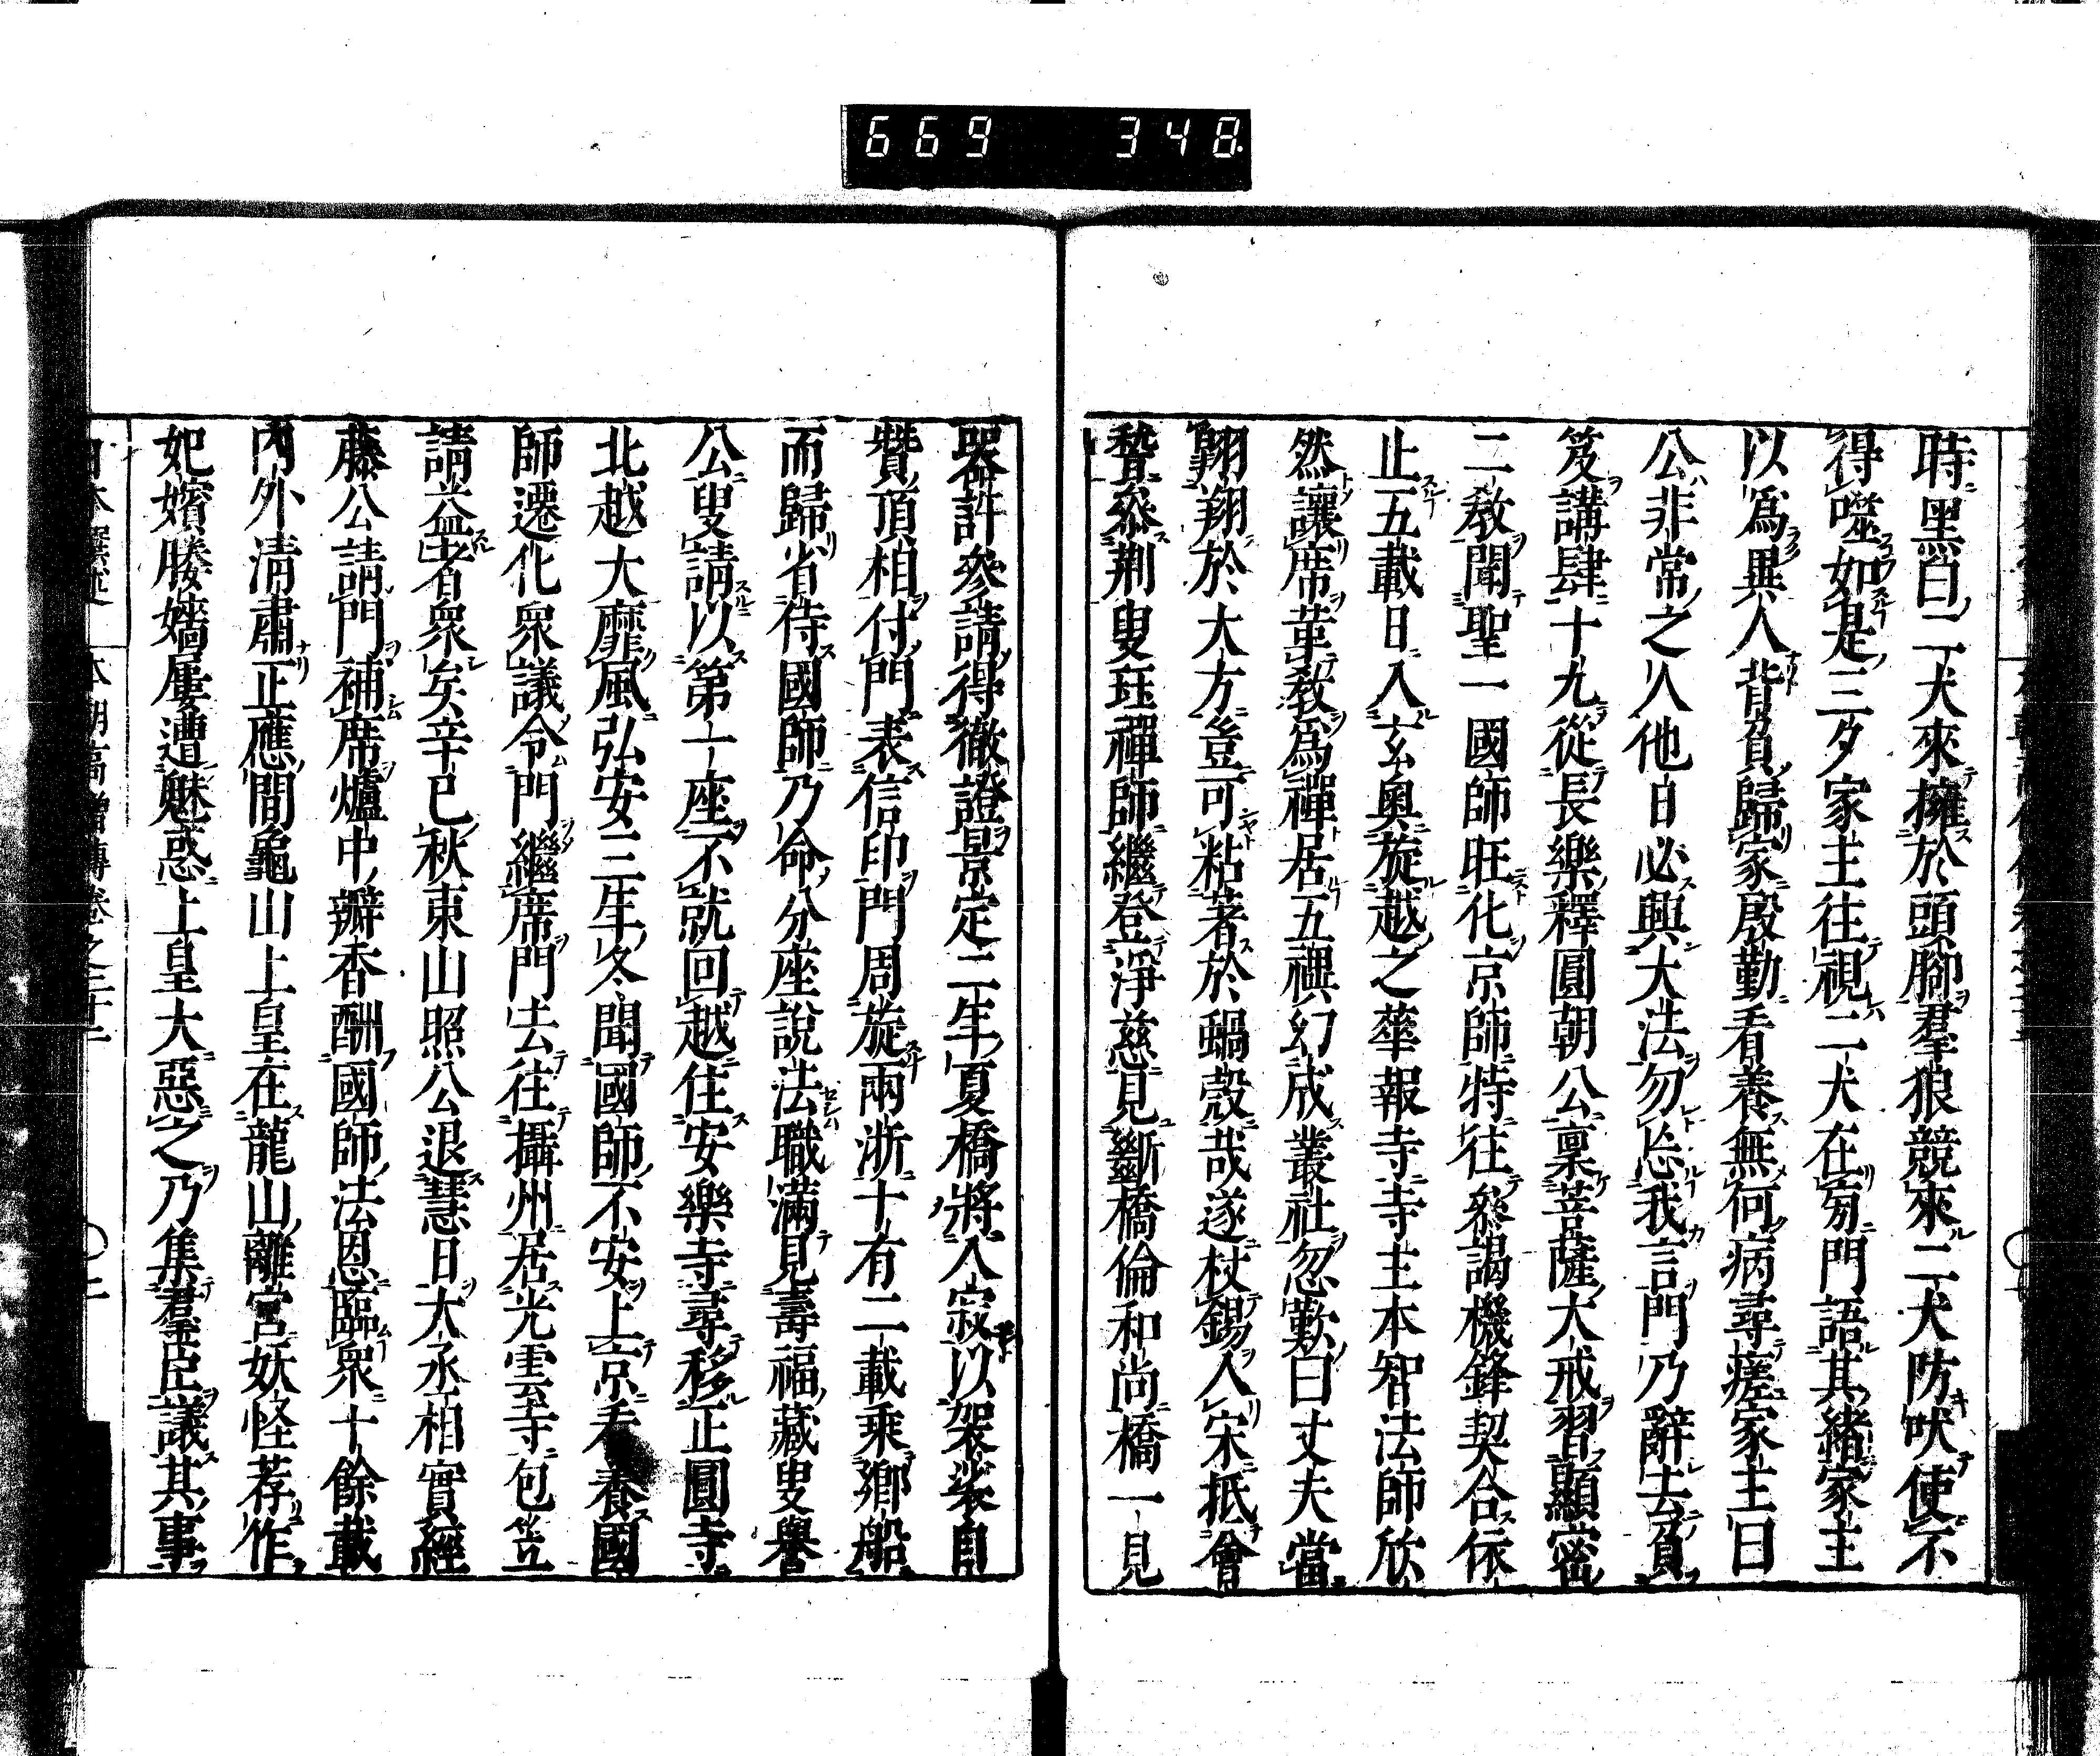 669 348
時黑白二犬來擁於頭腳羣狼競來二犬防吠使不
得噬如是三夕家主往視二犬在旁門語其緒家主
以爲異人背負歸家殷勤看養無何病尋瘥家主曰
公非常之人他日必興大法勿忘我言門乃辭去負
笈講肆十九從長樂釋圓朝公稟菩薩大戒習顯密
二敎聞聖一國師旺化京師特往參謁機鋒契合依
止五載日入玄奧旋越之華報寺寺主本智法師欣
然讓席革敎爲禪居五禩幻成叢社忽歎曰丈夫當
翺翔於大方豈可粘著於蝸殼哉遂杖錫入宋抵會
稽參荆叟珏禪師繼登淨慈見斷橋倫和尚橋一見
器許參請得徹證景定二年夏橋將入寂以袈裟自
贊頂相付門表信印門周旋兩浙十有二載乘鄕船
而歸省侍國師乃命分座說法職滿見壽福藏叟譽
公叟請以第一座不就回越住安樂寺尋移正圓寺
北越大靡風弘安三年冬聞國師不安上京看養國
師遷化衆議令門繼席門去往攝州居光雲寺包笠
請益者衆矣辛巳秋東山照公退慧日大丞相實經
藤公請門補席爐中瓣香酬國師法恩臨衆十餘載
內外淸肅正應間龜山上皇在龍山離宮妖怪荐作
妃嬪媵嬙屢遭魅惑上皇大惡之乃集羣臣議其事
本朝高僧傳卷之二十二